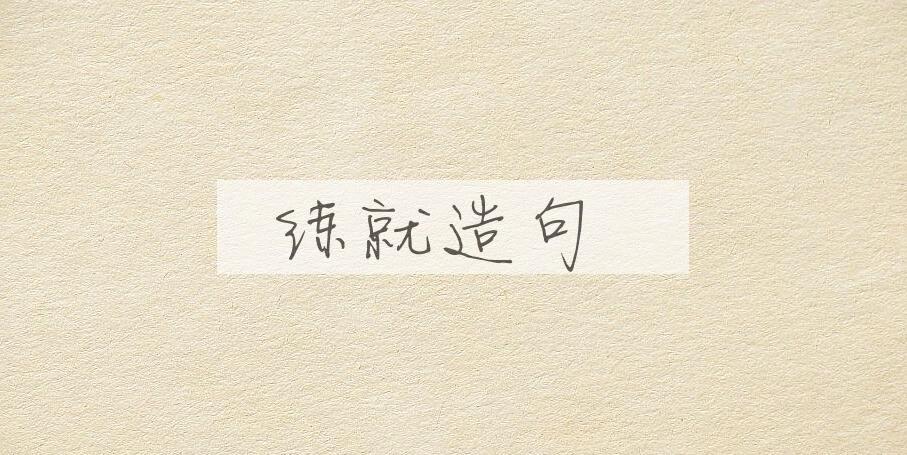 练就造句